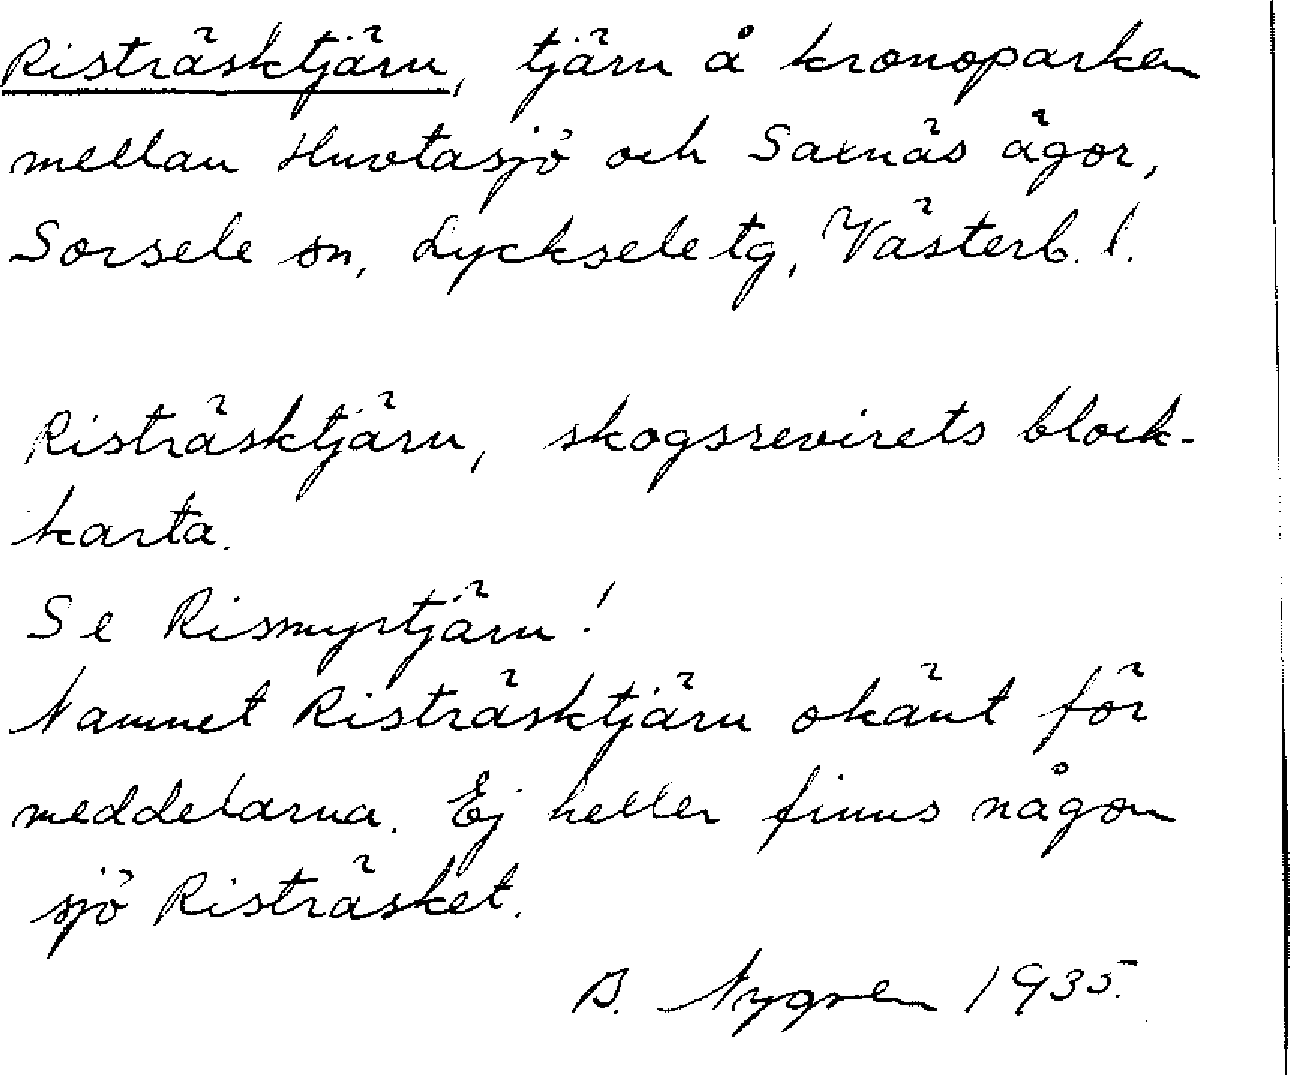 Risträsktjärn, tjärn å kronoparken
mellan Huvtasjö och Saxnäs ägor,
Sorsele sn, Lycksele tg, Västerb. l.
Risträsktjärn, skogsrevirets block-
karta.
Se Rismyrtjärn!
Namnet Risträsktjärn okänt för
meddelarna. Ej heller finns någon
sjö Risträsket.
B. Nygren 1935.